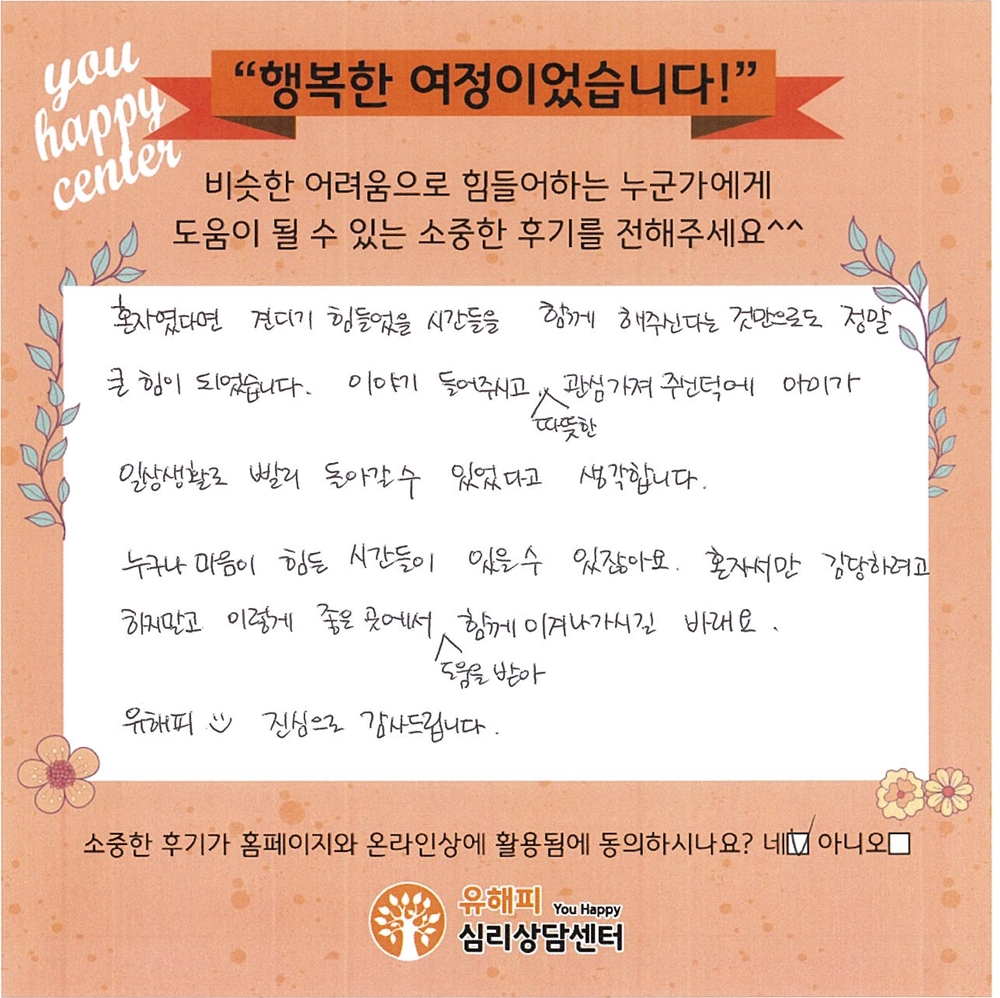 you
happy
center
“행복한 여정이었습니다!”
비슷한 어려움으로 힘들어하는 누군가에게
도움이 될 수 있는 소중한 후기를 전해주세요^^
혼자였다면 견디기 힘들었을 시간들을 함께 해주신다는 것만으로도 정말
큰 힘이 되었습니다. 이야기 들어주시고 관심가져 주신덕에 아이가
따뜻한
일상생활로 빨리 돌아갈 수 있었다고 생각합니다.
누구나 마음이 힘든 시간들이 있을 수 있잖아요. 혼자서만 감당하려고
하지말고 이렇게 좋은 곳에서 함께 이겨나가시길 바래요.
도움을 받아
유해피 진심으로 감사드립니다.
소중한 후기가 홈페이지와 온라인상에 활용됨에 동의하시나요? 네 아니오
유해피 You Happy
심리상담센터